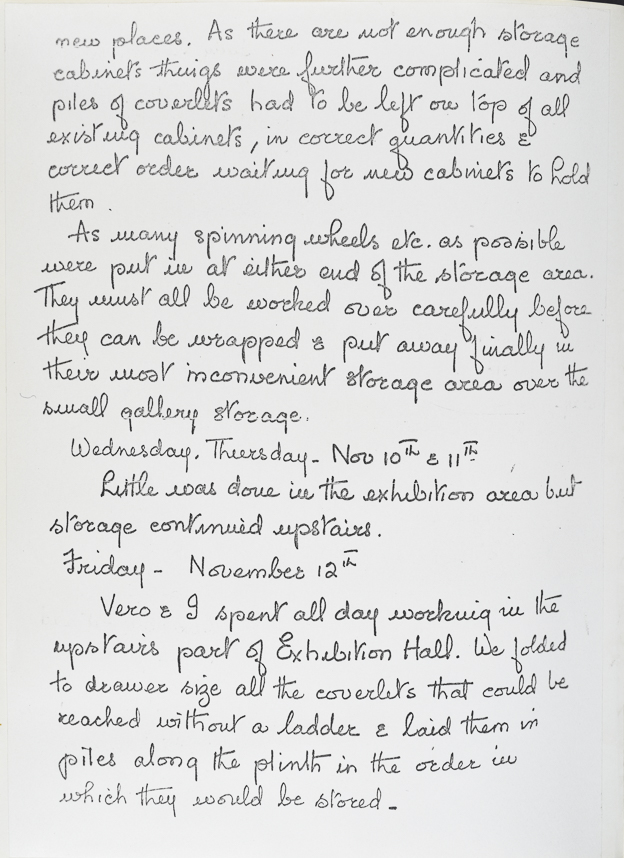 new places. As there are not enough storage
cabinets things were further complicated and
piles of coverlets had to be left on top of all
existing cabinets, in correct quantities &
correct order waiting for new cabinets to hold
them.
As many spinning wheels etc. as possible
were put in at either end of the storage area.
They must all be worked over carefully before
they can be wrapped & put away finally in
their most inconvenient storage area over the
small gallery storage.
Wednesday, Thursday - Nov 10th & 11th
Little was done in the exhibition area but
storage continued upstairs.
Friday - November 12th
Vero & I spent all day working in the
upstairs part of Exhibition Hall. We folded
to drawer size all the coverlets that could be
reached without a ladder & laid them in
piles along the plinth in the order in
which they would be stored -